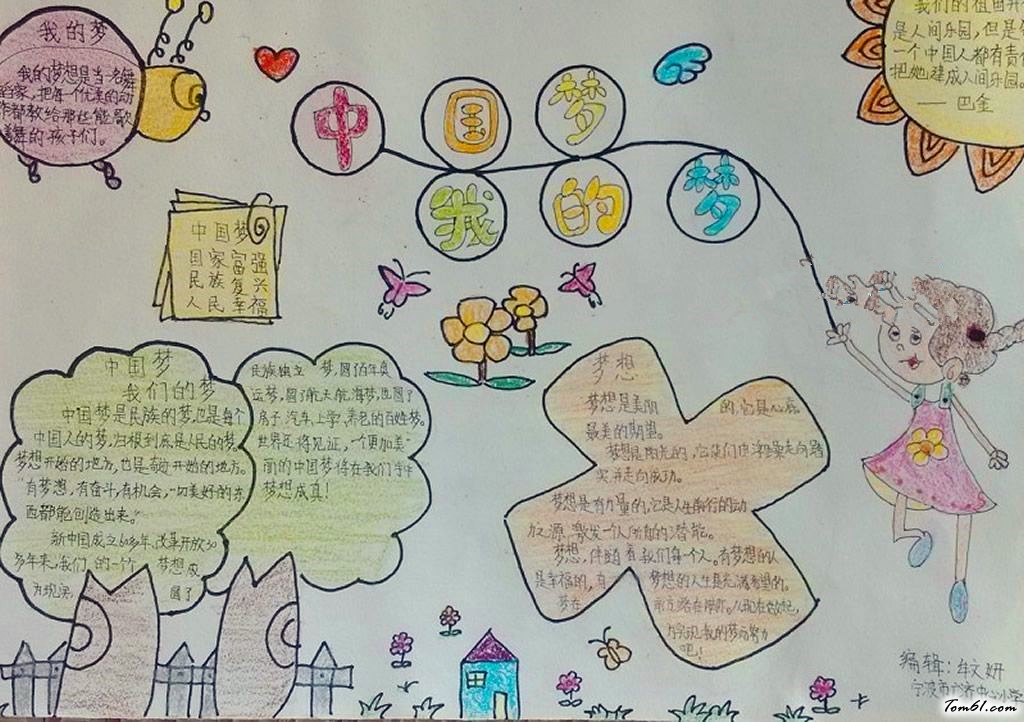 我的梦
我的梦想是当一名舞
蹈家,把每个优美的动
作都教给那些能歌
善舞的孩子们。
中国梦
我的梦
我们的祖国并
是人间乐园,但是
一个中国人都有责
把她建成人间乐园。
——巴金
中国梦
国家富强
民族复兴
人民幸福
中国梦
我们的梦
中国梦是民族的梦,也是每个
中国人的梦,归根到底是人民的梦。
梦想开始的地方,也是奇迹开始的地方。
“有梦想,有奋斗,有机会,一切美好的东
西都能创造出来。”
新中国成立60多年,改革开放30
多年来,我们的一个 梦想成
为现实, 圆了
民族独立 梦,圆百年奥
运梦,圆了航天航海梦,也圆了
房子,汽车,上学,养老的百姓梦。
世界还将见证,一个更加美
丽的中国梦将在我们手中
梦想成真!
梦想
梦想是美丽 的,它是心底
最美的期望。
梦想是阳光的,它使们由浮躁走向踏
实,并走向成功。
梦想是有力量的,它是人生前行的动
力之源,激发一个人所有的潜能。
梦想,伴随着我们每一个人。有梦想的人
是幸福的,有 梦想的人生是充满希望的。
梦在 前方,路在脚下。从现在做起,
为实现我的梦而努力
吧!
编辑:牟文妍
宁波市广济中心小学
Tom61.com